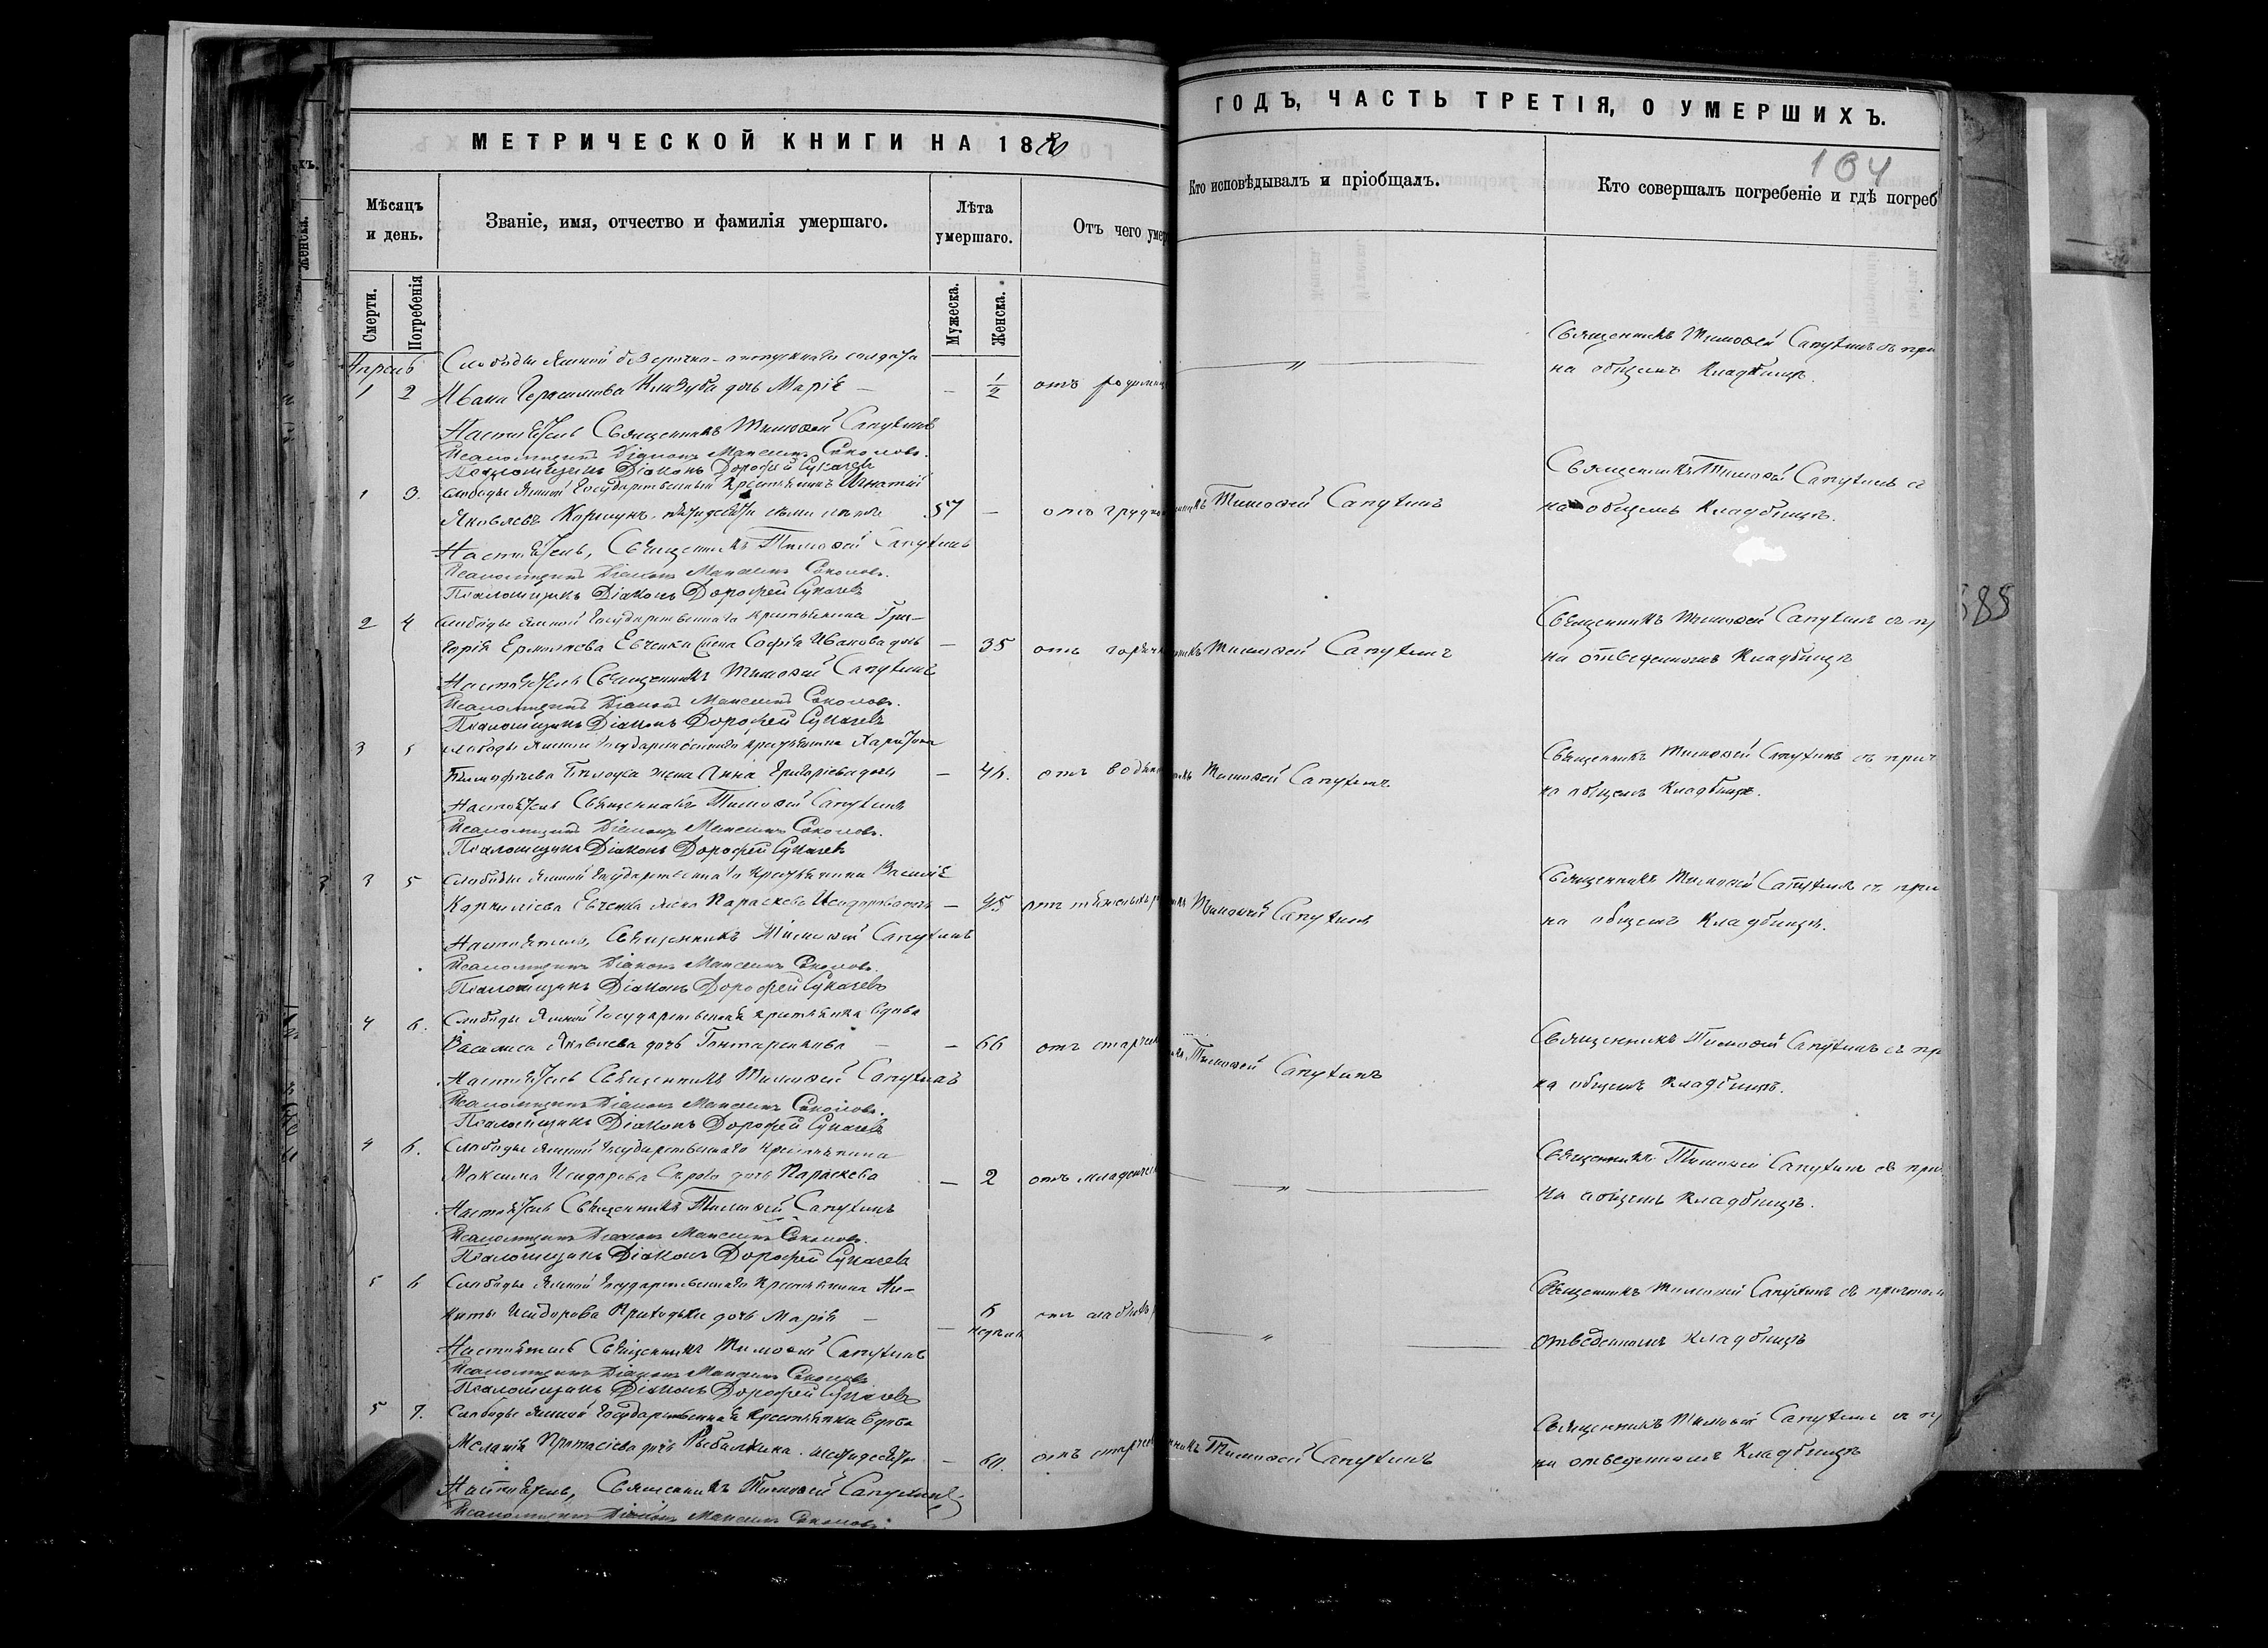 МЕТРИЧЕСКОЙ КНИГИ НА 1880
Мѣсяцъ и день.
Званіе, имя, отчество и фамилія умершаго.
Лѣта умершаго.
Отъ чего умер
Смерти.
Погребенія
Мужеска.
Женска.
Апрель
Слободы Ямной безсрочно-отпускнаго солдата
1 2 Ивана Герасимова дочь Марія — — 1/2 отъ родимца
Настоятель Священникъ Тимофей Сапухинъ
Псаломщикъ Діаконъ Максимъ Соколовъ.
Псаломщикъ Діаконъ Дорофей Сукачевъ
1 3. Слободы Ямной Государственный Крестьянинъ Игнатий
Яковлевъ Коршунъ. 57 — отъ грудно
Настоятель, Священникъ Тимофей Сапухинъ
Псаломщикъ Діаконъ Максимъ Соколовъ.
Псаломщикъ Діаконъ Дорофей Сукачевъ
2 4 Слободы Ямной Государственнаго Крестьянина Гри-
горія Ермолаева Евченка жена Софія Иванова дочь — 35 отъ горячк
Настоятель Священникъ Тимофей Сапухинъ
Псаломщикъ Діаконъ Максимъ Соколовъ.
Псаломщикъ Діаконъ Дорофей Сукачевъ
3 5 Слободы Ямной Государственнаго Крестьянина Харитона
Тимофѣева жена Анна Григоріева дочь — отъ водян
Настоятель Священникъ Тимофей Сапухинъ
Псаломщикъ Діаконъ Максимъ Соколовъ.
Псаломщикъ Діаконъ Дорофей Сукачевъ
3 5 Слободы Ямной Государственнаго Крестьянина Василія
Корнилієва Евченка жена Параскева Исидорова дочь — 45
Настоятель, Священникъ Тимофей Сапухинъ
Псаломщикъ Діаконъ Максимъ Соколовъ.
Псаломщикъ Діаконъ Дорофей Сукачевъ
4 6. Слободы Ямной Государственная крестьянка вдова
Василиса Яковлева дочь Гонтаренкова — — 66 отъ старчес
Настоятель Священникъ Тимофей Сапухинъ
Псаломщикъ Діаконъ Максимъ Соколовъ.
Псаломщикъ Діаконъ Дорофей Сукачевъ
4 6. Слободы Ямной Государственнаго Крестьянина
Максима Исидорова Сѣраго дочь Параскева — 2 отъ младенчес
Настоятель Священникъ Тимофей Сапухинъ
Псаломщикъ Діаконъ Максимъ Соколовъ.
Псаломщикъ Діаконъ Дорофей Сукачевъ
5 6 Слободы Ямной Государственнаго Крестьянина Ни-
киты Исидорова Приходьки дочь Марія — — 6 недѣль отъ слабост
Настоятель Священникъ Тимофей Сапухинъ
Псаломщикъ Діаконъ Максимъ Соколовъ
Псаломщикъ Діаконъ Дорофей Сукачевъ
5 7. Слободы Ямной Государственная Крестьянка вдова
Меланія Протасіева дочь Рыбалкина. шестидесяти — 60. отъ старчес
Настоятель, Священникъ Тимофей Сапухинъ
Псаломщикъ Діаконъ Максимъ Соколовъ.
ГОДЪ, ЧАСТЬ ТРЕТІЯ, О УМЕРШИХЪ.
104
Кто исповѣдывалъ и пріобщалъ.
Кто совершалъ погребеніе и гдѣ погреб
Священникъ Тимофей Сапухинъ съ при
— „ — на общемъ кладбищѣ.
Священникъ Тимофей Сапухинъ съ
Тимофей Сапухинъ на общемъ Кладбищѣ.
Священникъ Тимофей Сапухинъ съ пр
Тимофей Сапухинъ на отведенномъ Кладбищѣ
Священникъ Тимофей Сапухинъ съ прич
Тимофей Сапухинъ на общемъ Кладбищѣ.
Священникъ Тимофей Сапухинъ съ при
Тимофей Сапухинъ на общемъ Кладбищѣ.
Священникъ Тимофей Сапухинъ съ пр
Тимофей Сапухинъ на общемъ Кладбищѣ.
Священникъ Тимофей Сапухинъ съ при
— „ — на общемъ Кладбищѣ.
Священникъ Тимофей Сапухинъ съ причтомъ
— „ — отведенномъ кладбищѣ
Священникъ Тимофей Сапухинъ съ пр
Тимофей Сапухинъ на отведенномъ Кладбищѣ